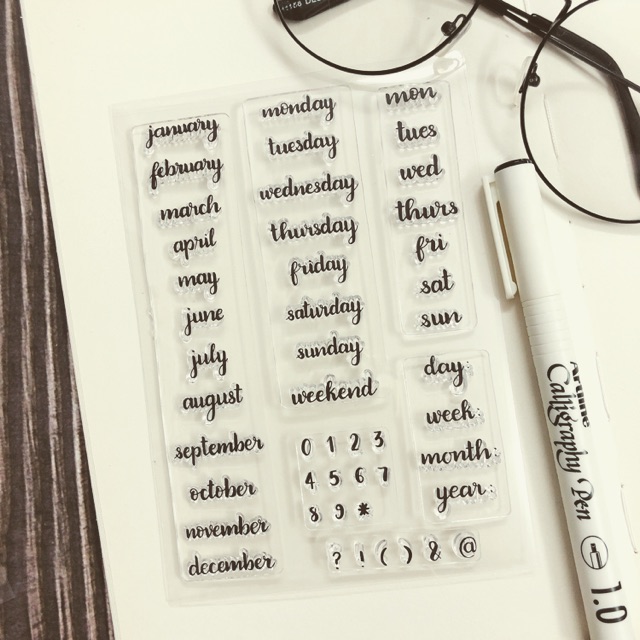 january
february
march
april
may
june
july
august
september
october
november
december
monday
tuesday
wednesday
thursday
friday
saturday
sunday
weekend
0 1 2 3
4 5 6 7
8 9 *
? ! ( ) & @
mon
tues
wed
thurs
fri
sat
sun
day:
week:
month:
year:
Artline
Calligraphy Pen
1.0